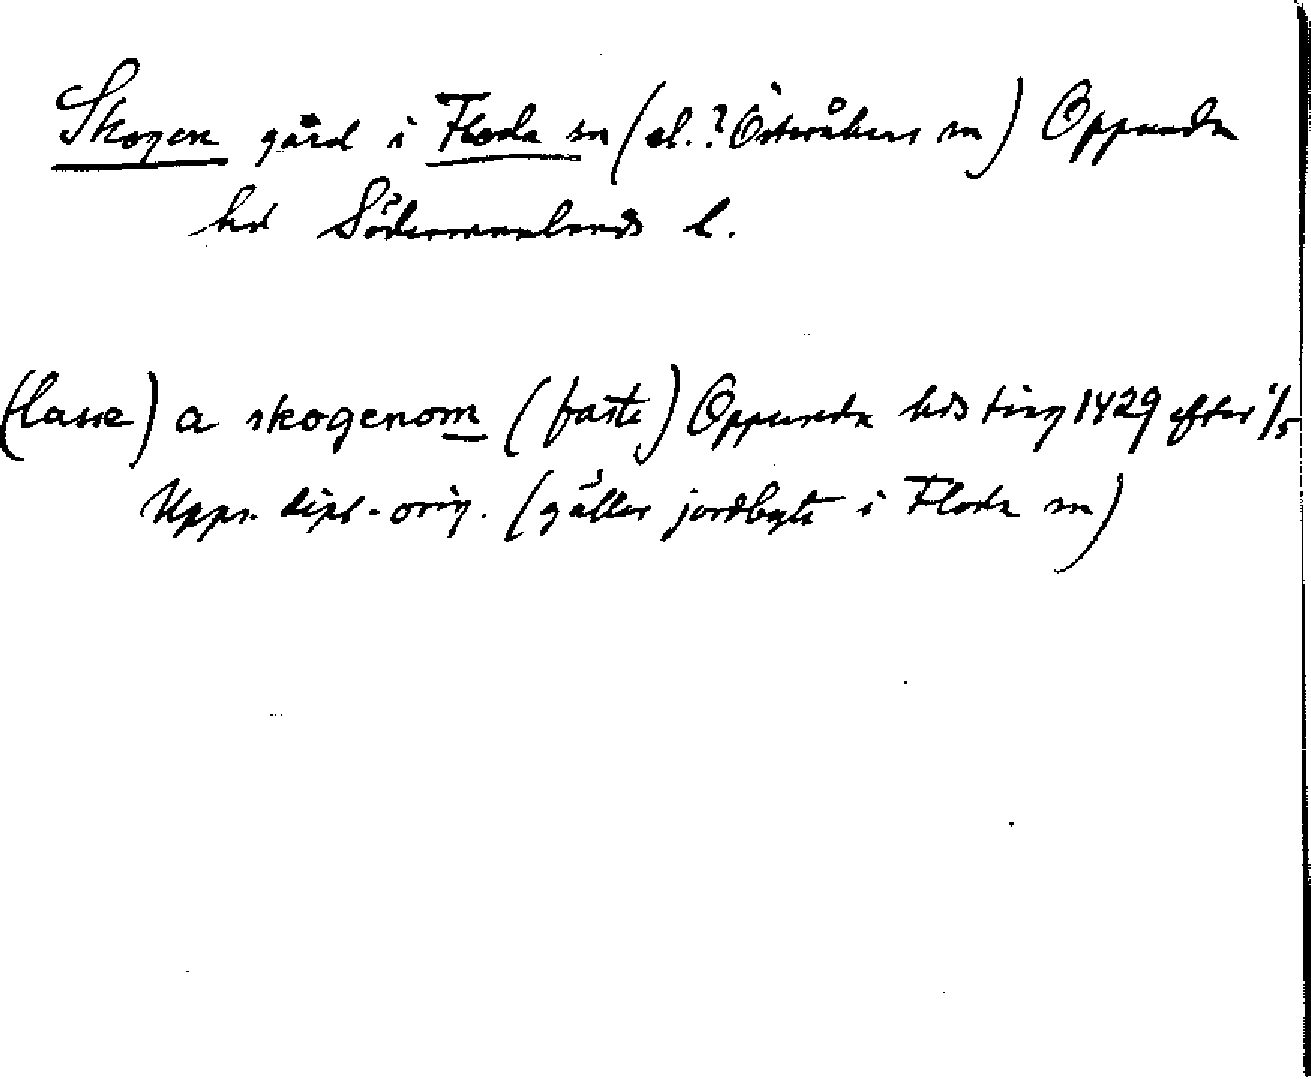 Skogen gård i Floda sn (el.? Österåkers sn) Oppunda
hd Södermanlands l.
(lasse) a skogenom (faste) Oppunda hds ting 1429 efter 1/5
Upps. dipl-orig. (gäller jordbyte i Floda sn)